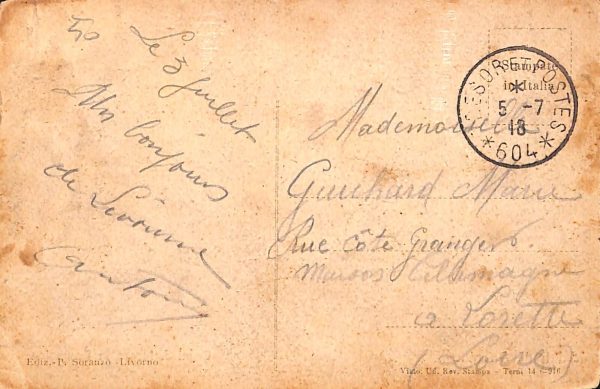 Le 3 Juillet
Mes bonjours
de Livourne
Antoine
Stampato
in Italia
TRESOR ET POSTES
*
5 -7
18
* 604 *
Mademoiselle
Guichard Marie
Rue Côte Granger
Maison
a Lorette
(Loire)
Ediz.-P. Soranzo -Livorno
Visto. Uf. Rev. Stampa - Terni 14